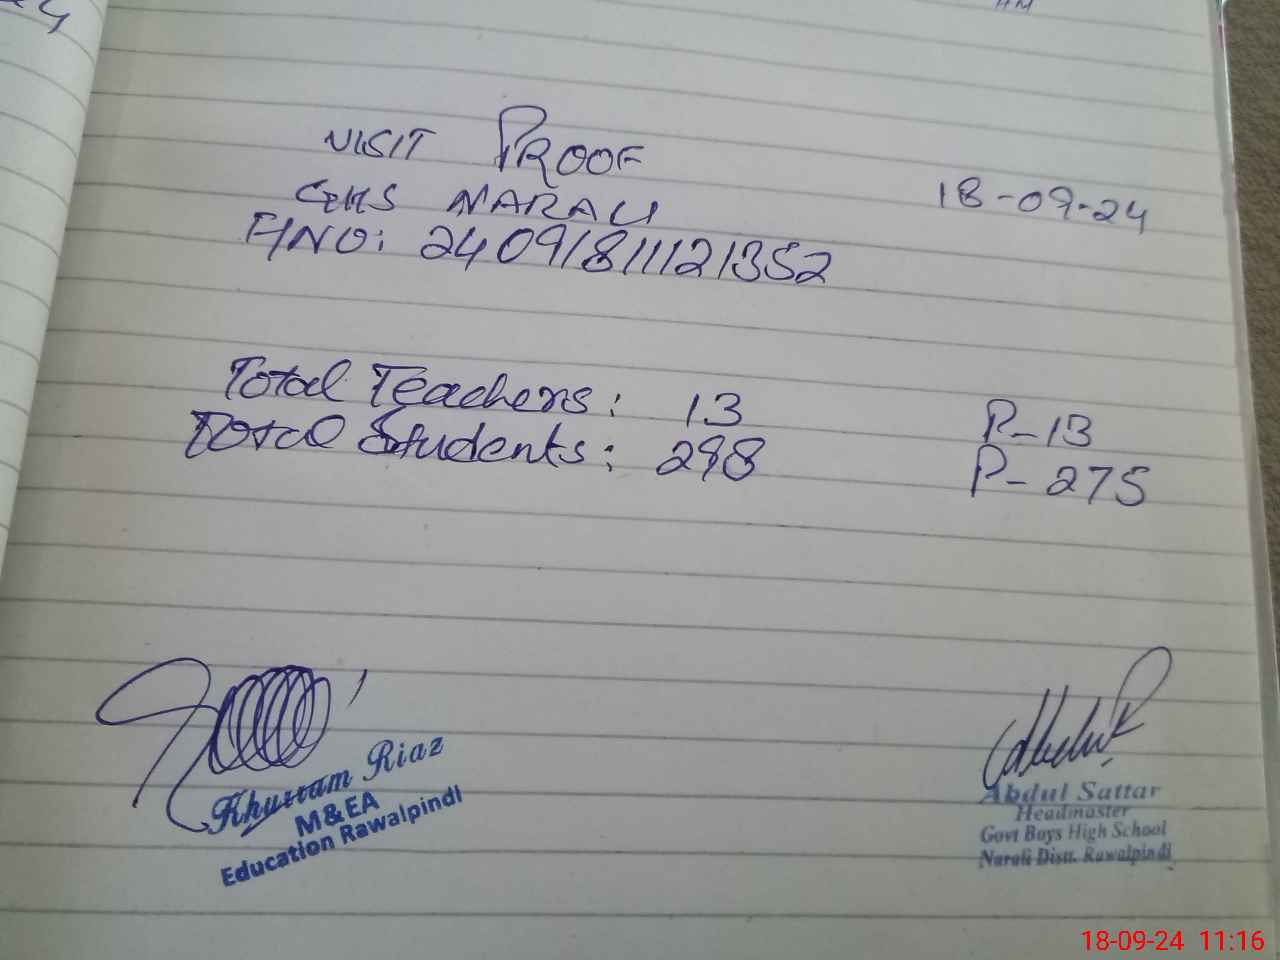 VISIT PROOF
GHS NARALI
18-09-24
F/NO: 240918111121352
Total Teachers: 13 P-13
Total Students: 298 P-275
Khurram Riaz
M&EA
Education Rawalpindi
Abdul Sattar
Headmaster
Govt Boys High School
Narali Distt. Rawalpindi
18-09-24 11:16